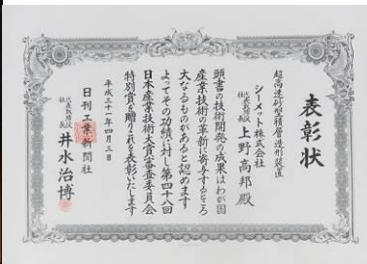 表彰状
超高速砂型積層造形装置
シーメット株式会社
代表取締役社長 上野高邦殿
頭書の技術開発の成果はわが国
産業技術の革新に寄与するところ
大なるものがあると認めます
よってその功績に対し第四十八回
日本産業技術大賞審査委員会
特別賞を贈りこれを表彰いたします
平成三十一年四月三日
日刊工業新聞社
代表取締役社長 井水治博